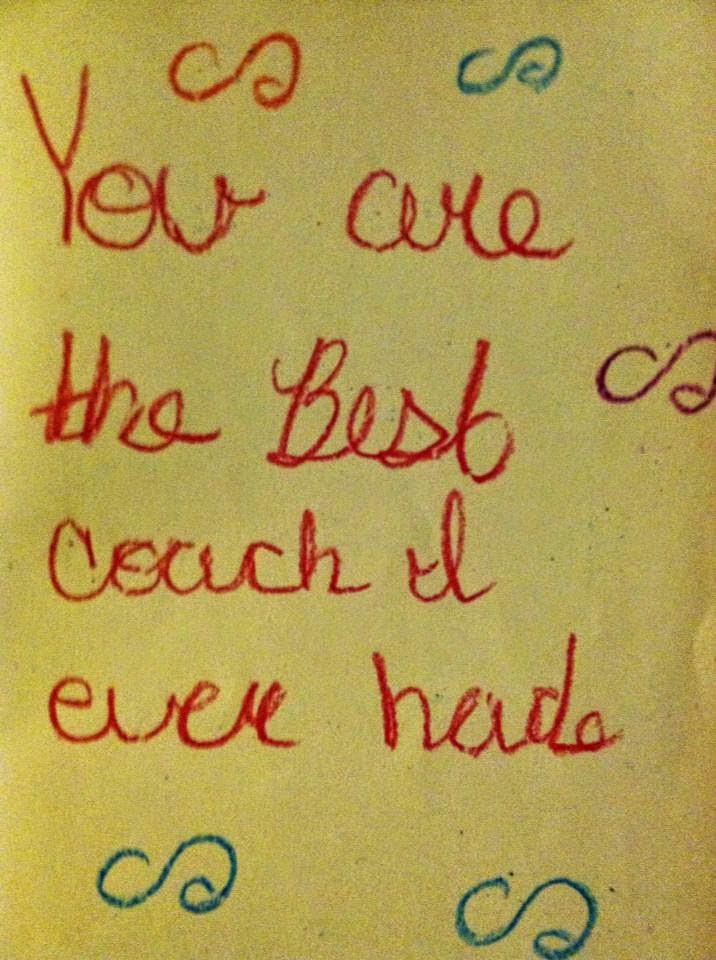 You are
the Best
coach I
ever hade